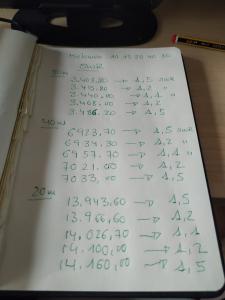 SWR
80m
3.403,80 → 1,5 SWR
3.415,80 → 1,2 "
3.440,00 → 1,1 "
3.468,00 → 1,2
3.486,20 → 1,5
40m
6923,70 → 1,5 SWR
6934,30 → 1,2 "
6957,70 → 1,1 "
7021.00 → 1,2
7033,00 → 1,5
20m
13.943,60 → 1,5
13.966,60 → 1,2
14.026,70 → 1,1
14.100,00 → 1,2
14.160,00 → 1,5